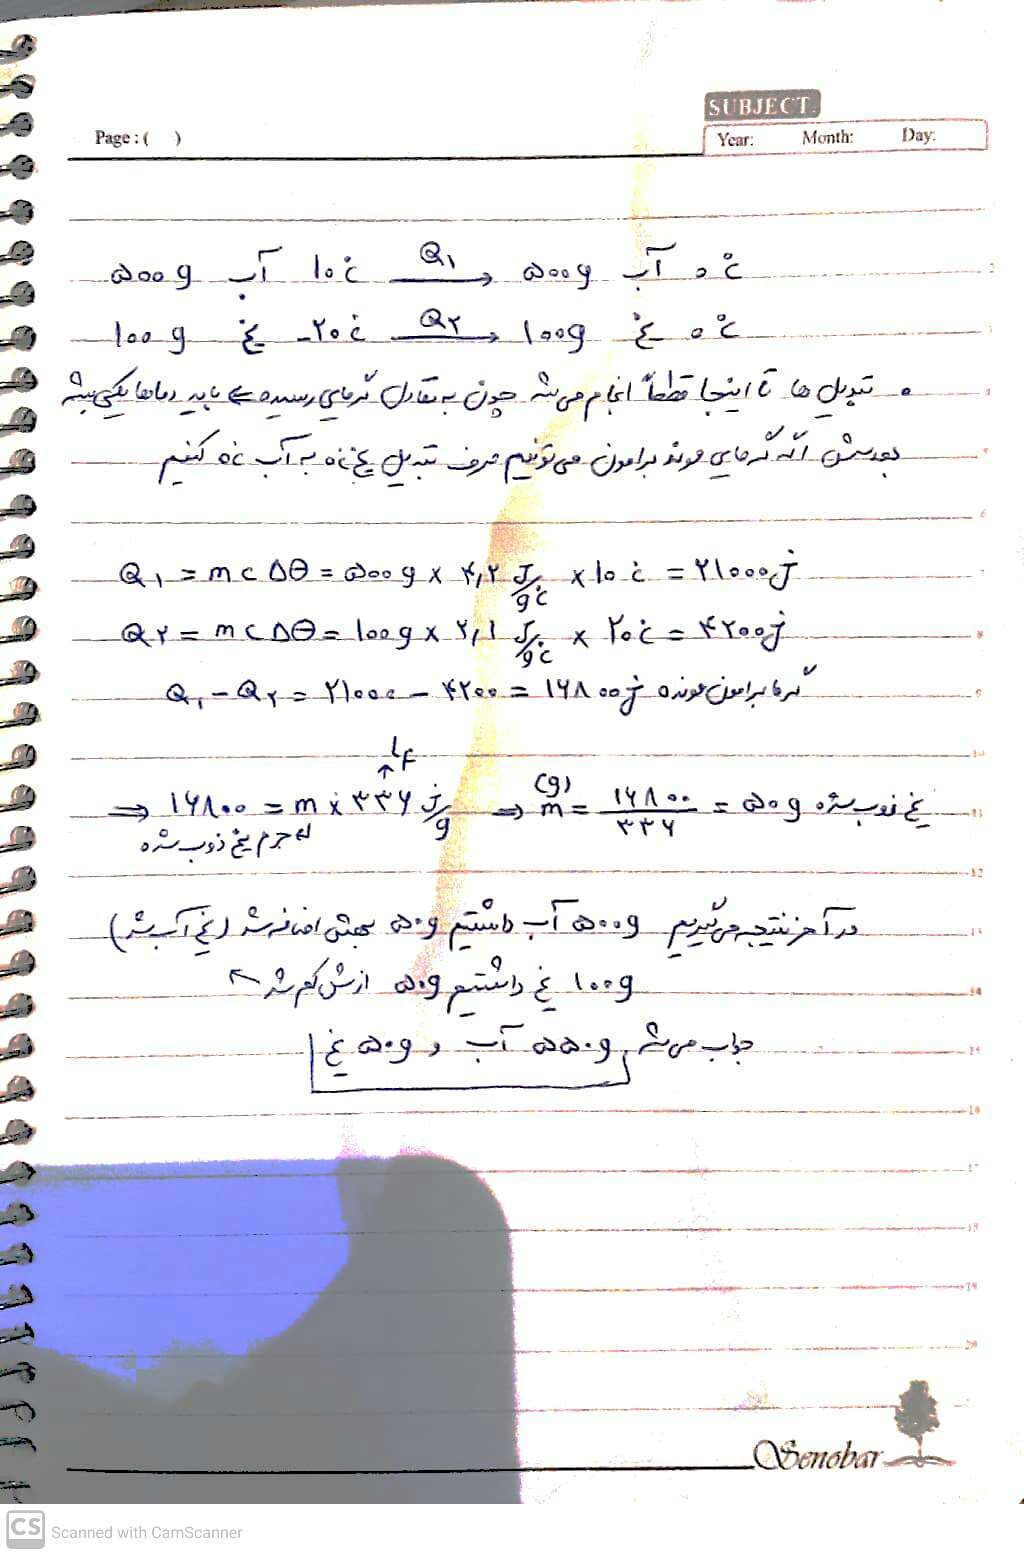 SUBJECT.
Page : ( )
Year: Month: Day:
۵۰۰g آب ۱۰°C Q۱ → ۵۰۰g آب ۰°C
۱۰۰g یخ -۲۰°C Q۲ → ۱۰۰g یخ ۰°C
تبدیل ها تا اینجا قطعاً انجام می‌شه چون به تعادل گرمایی رسیده ⇐ باید دماها یکی بشه
بعدش اگه گرمایی موند برامون می‌تونیم صرف تبدیل یخ ۰°C به آب ۰°C کنیم
Q۱ = mcΔθ = ۵۰۰g × ۴,۲ J/g°C × ۱۰°C = ۲۱۰۰۰J
Q۲ = mcΔθ = ۱۰۰g × ۲,۱ J/g°C × ۲۰°C = ۴۲۰۰J
Q۱ - Q۲ = ۲۱۰۰۰ - ۴۲۰۰ = ۱۶۸۰۰J گرما برامون مونده
LF
↑
⇒ ۱۶۸۰۰ = m × ۳۳۶ J/g ⇒ m(g) = ۱۶۸۰۰/۳۳۶ = ۵۰g یخ ذوب شده
جرم یخ ذوب شده
در آخر نتیجه می‌گیریم ۵۰۰g آب داشتیم ۵۰g بهش اضافه شد (یخ آب شد)
۱۰۰g یخ داشتیم ۵۰g ازش کم شد
جواب می‌شه ۵۵۰g آب و ۵۰g یخ
2
3
4
5
6
7
8
9
10
11
12
13
14
15
16
17
18
19
20
Senobar
CS Scanned with CamScanner